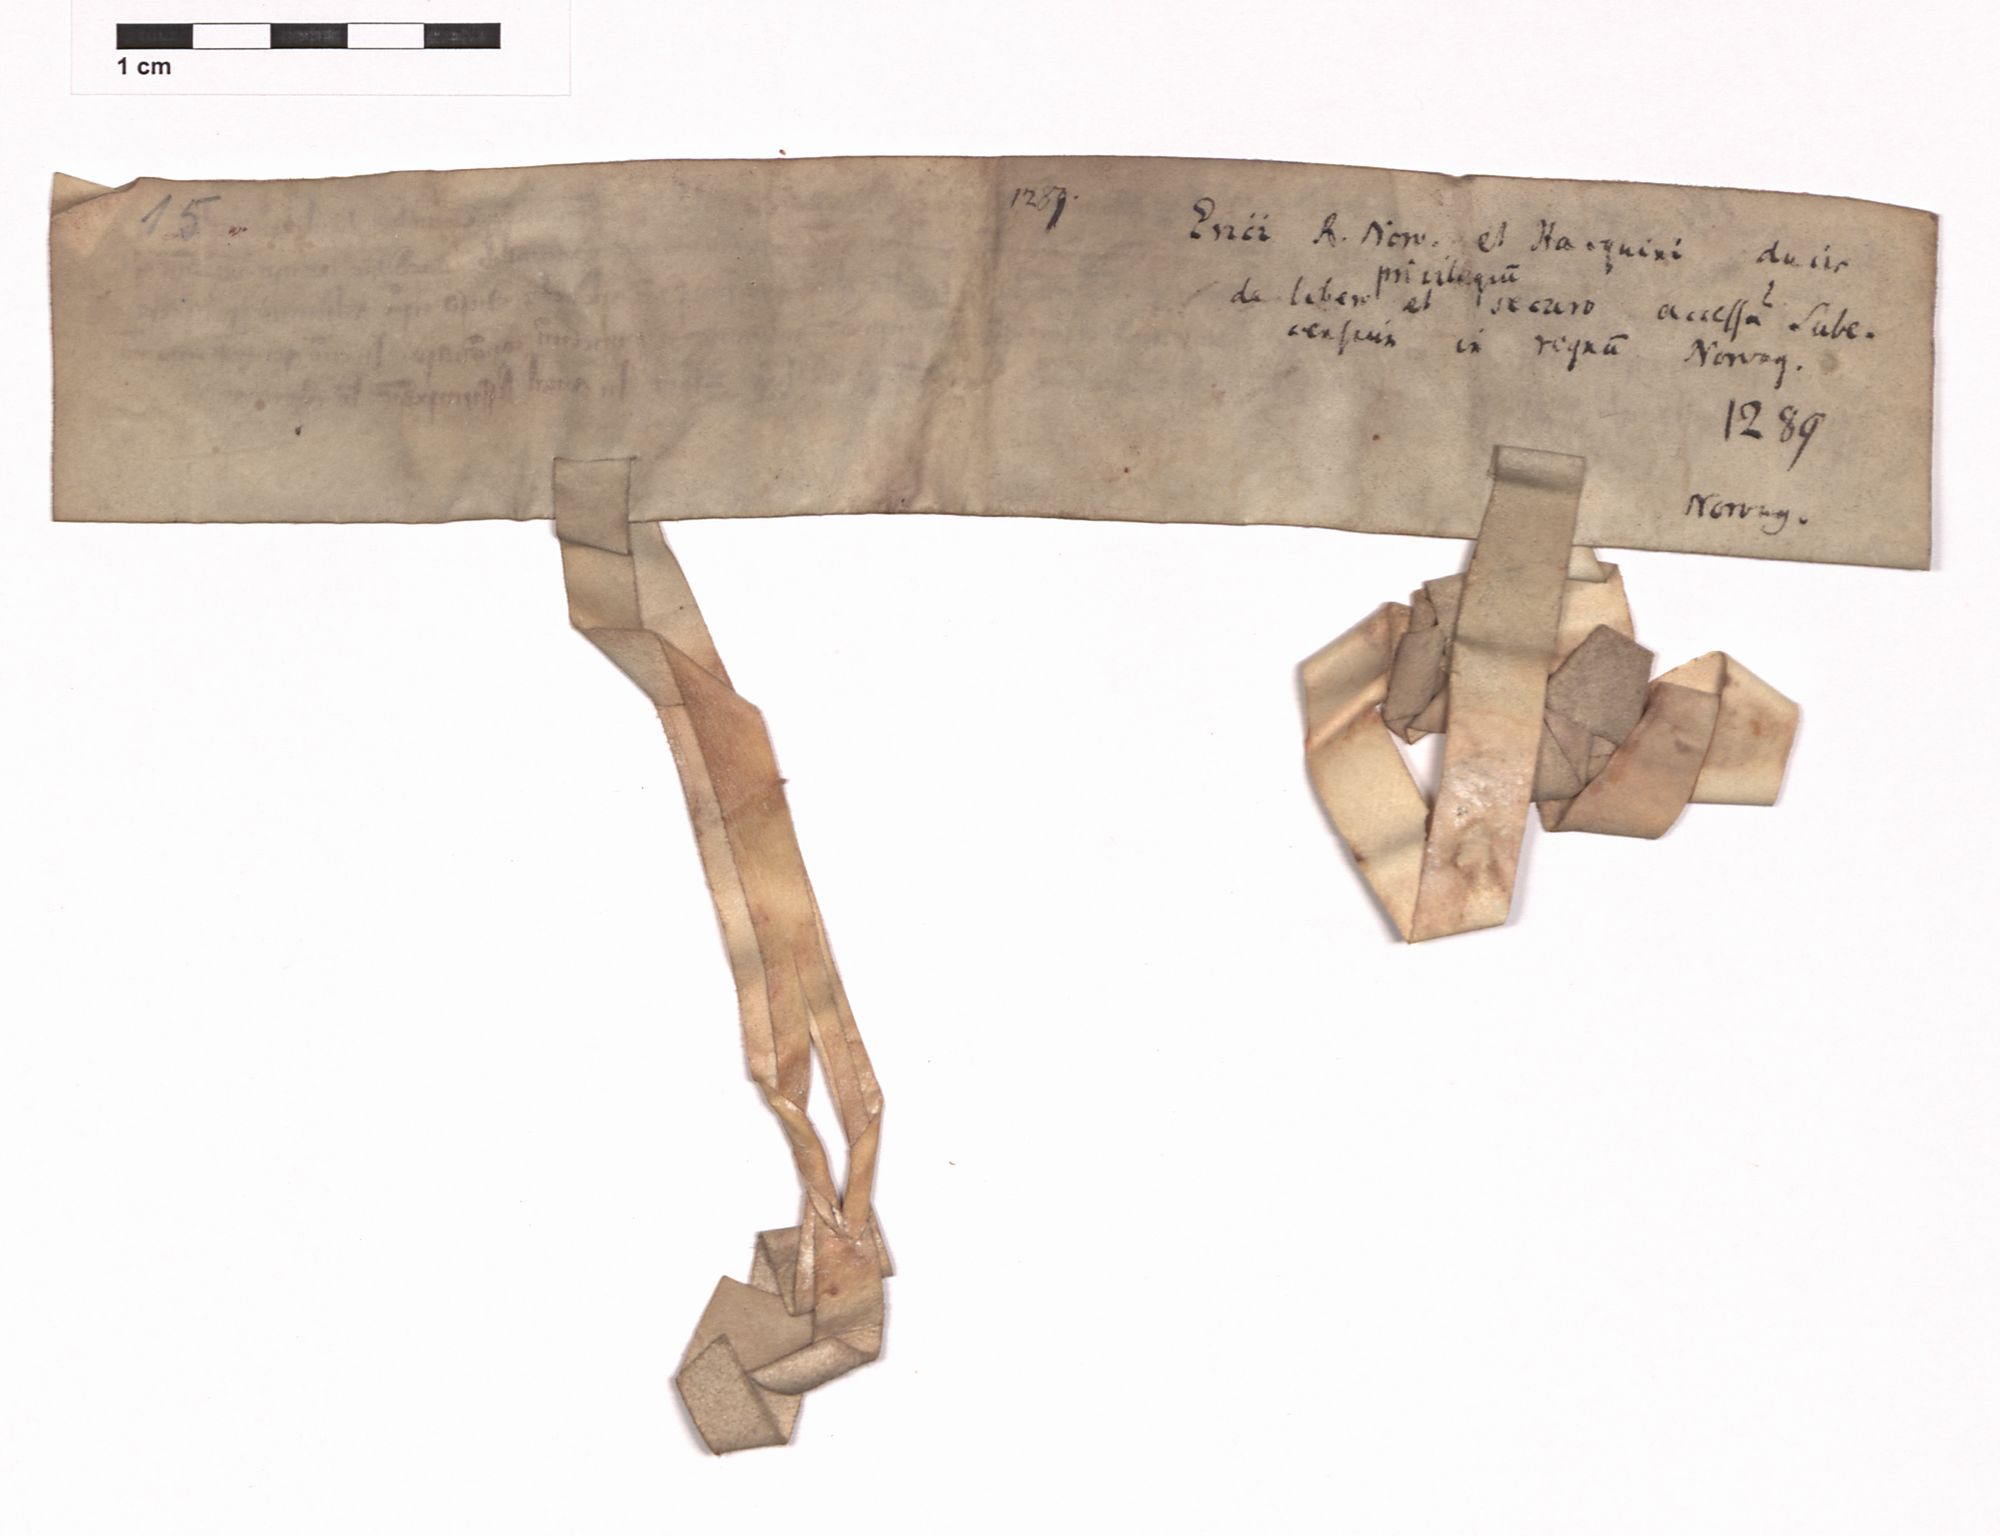 1 cm
15
1289.
Erici R. Norv. et Haequini ducis
privilegiū
de libero et securo accessu Lube-
censium in regnū Norvag.
1289
Norvag.